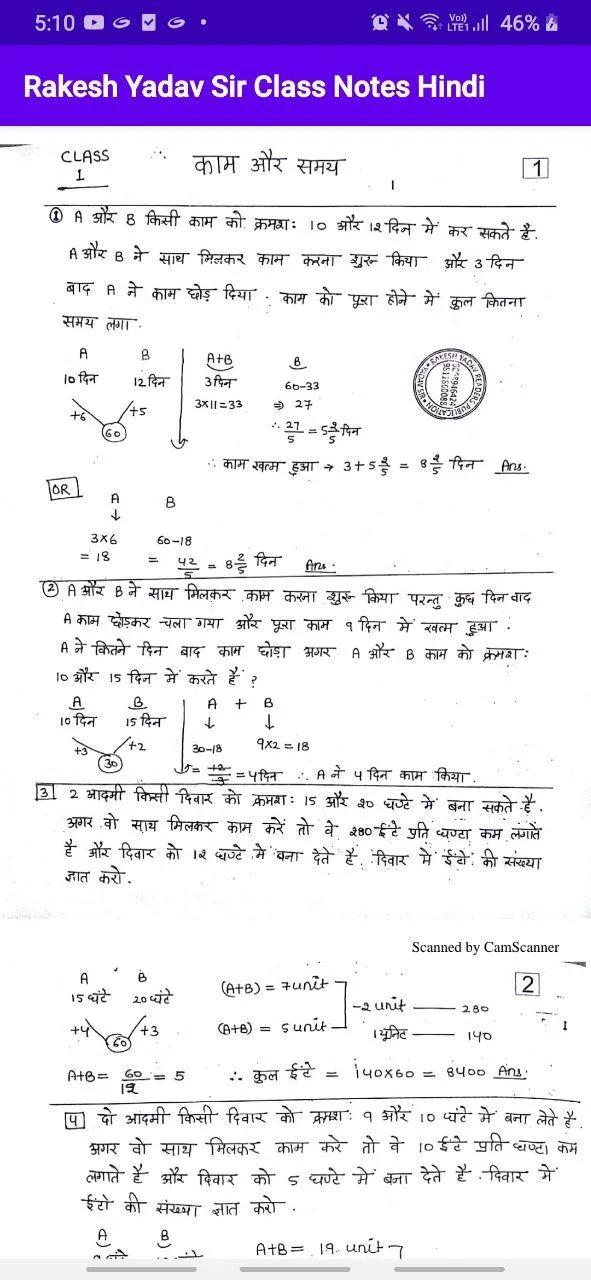 5:10
Vo))
LTE1
46%
Rakesh Yadav Sir Class Notes Hindi
CLASS
1
काम और समय
1
① A और B किसी काम को क्रमश: 10 और 12 दिन में कर सकते है.
A और B ने साथ मिलकर काम करना शुरु किया और 3 दिन
बाद A ने काम छोड़ दिया. काम को पूरा होने में कुल कितना
समय लगा.
A B
10 दिन 12 दिन
+6 +5
60
A+B
3 दिन
3×11=33
B
60-33
⇒ 27
∴ 27/5 = 5 2/5 दिन
∴ काम खत्म हुआ → 3+5 2/5 = 8 2/5 दिन Ans.
OR
A B
↓
3×6 60-18
= 18 = 42/5 = 8 2/5 दिन Ans.
② A और B ने साथ मिलकर काम करना शुरू किया परन्तु कुछ दिन बाद
A काम छोड़कर चला गया और पूरा काम 9 दिन में खत्म हुआ.
A ने कितने दिन बाद काम छोड़ा अगर A और B काम को क्रमश:
10 और 15 दिन में करते हैं ?
A B
10 दिन 15 दिन
+3 +2
30
A + B
↓ ↓
30-18 9×2=18
= 12/3 = 4 दिन ∴ A ने 4 दिन काम किया.
3 2 आदमी किसी दिवार को क्रमश: 15 और 20 घण्टे में बना सकते है.
अगर वो साथ मिलकर काम करें तो वे 280 ईटे प्रति घण्टा कम लगाते
है और दिवार को 12 घण्टे में बना देते है. दिवार में ईटों की संख्या
ज्ञात करो.
Scanned by CamScanner
2
A B
15 घंटे 20 घंटे
+4 +3
60
(A+B) = 7 unit
(A+B) = 5 unit
-2 unit — 280
1 यूनिट — 140
A+B = 60/12 = 5 ∴ कुल ईंटे = 140×60 = 8400 Ans.
4 दो आदमी किसी दिवार को क्रमश: 9 और 10 घंटे में बना लेते है.
अगर वो साथ मिलकर काम करे तो वे 10 ईंटे प्रति घण्टा कम
लगाते है और दिवार को 5 घण्टे में बना देते है. दिवार में
ईंटो की संख्या ज्ञात करो.
A B
A+B = 19 unit